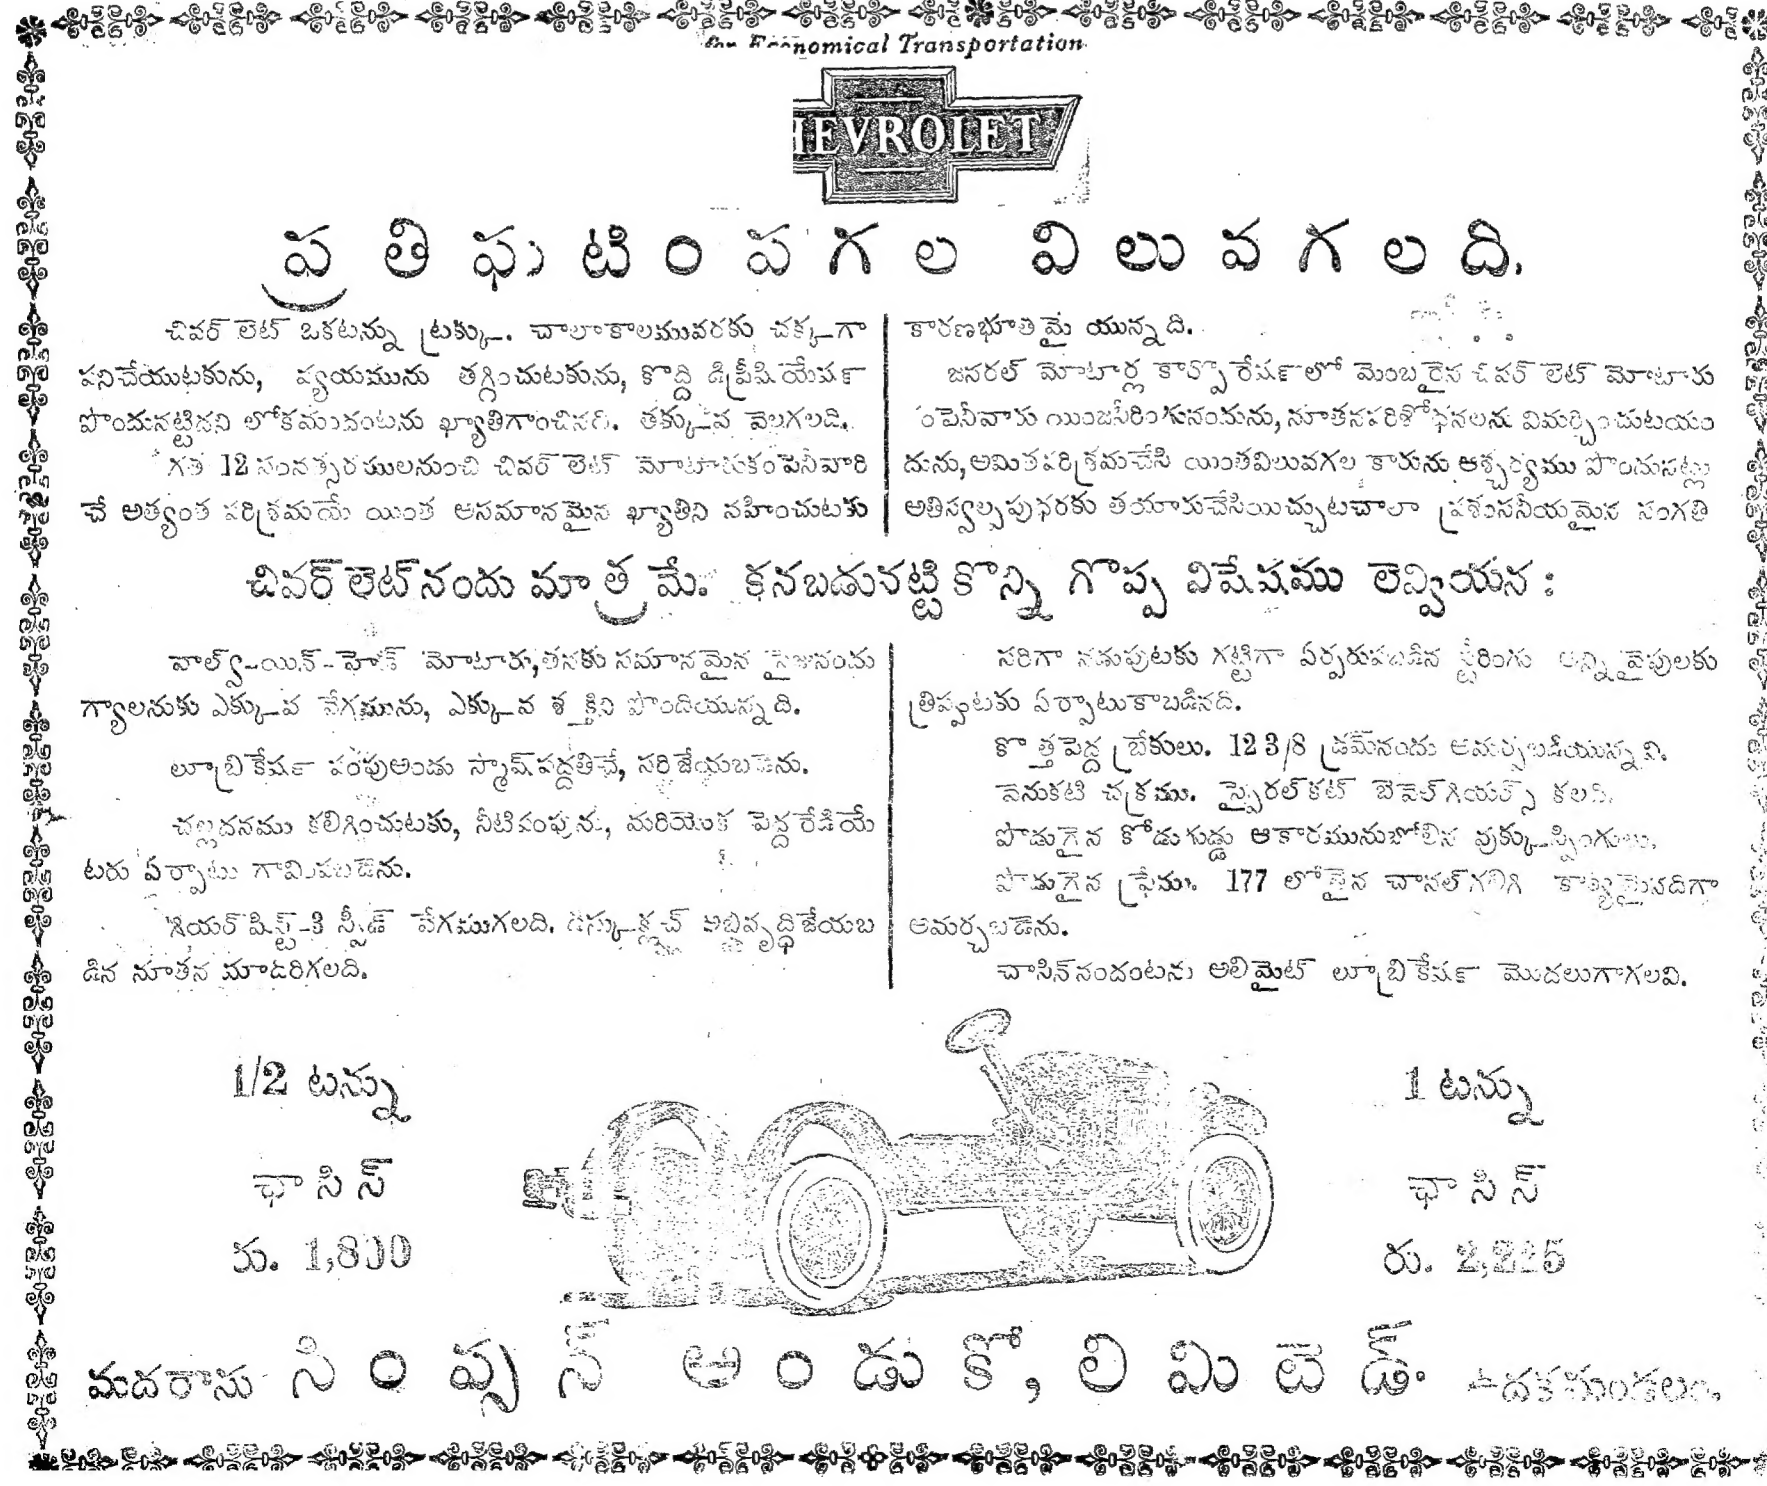 for Economical Transportation
HEVROLET
ప్రతిఘటింపగల విలువగలది.
చివర్ లెట్ ఒకటన్ను ట్రక్కు. చాలాకాలమువరకు చక్కగా
పనిచేయుటకును, వ్యయమును తగ్గించుటకును, కొద్ది డిప్రీషియేషణ్
పొందునట్టిదని లోకమందంటను ఖ్యాతిగాంచినది. తక్కువ వెలగలది.
గత 12 సంవత్సరములనుంచి చివర్ లెట్ మోటారుకంపెనీవారి
చే అత్యంత పరిశ్రమయే యింత అసమానమైన ఖ్యాతిని వహించుటకు
కారణభూతమై యున్నది.
జనరల్ మోటార్ల కార్పొరేషణ్‌లో మెంబరైన చివర్ లెట్ మోటారు
కంపెనీవారు యింజనీరింగునందును, నూతనపరిశోధనలను విమర్చించుటయం
దును, అమితపరిశ్రమచేసి యింతవిలువగల కారును ఆశ్చర్యము పొందునట్లు
అతిస్వల్పపుధరకు తయారుచేసియిచ్చుటచాలా ప్రశంసనీయమైన సంగతి
చివర్ లెట్ నందు మాత్రమే కనబడునట్టి కొన్ని గొప్ప విషేషము లెవ్వియన :
వాల్వ్-యిన్-హెడ్ మోటారు, తనకు సమానమైన సైజునందు
గ్యాలనుకు ఎక్కువ వేగమును, ఎక్కువ శక్తిని పొందియున్నది.
లూబ్రికేషణ్ పంపుఅండు స్ప్లాష్ పద్దతిచే, సరిజేయబడెను.
చల్లదనము కలిగించుటకు, నీటిపంపును, మరియొక పెద్ద రేడియే
టరు ఏర్పాటు గావింపబడెను.
గియర్ షిఫ్ట్-3 స్పీడ్ వేగముగలది. డిస్కుక్లచ్ అభివృద్ధిజేయబ
డిన నూతన మాదరిగలది.
సరిగా నడుపుటకు గట్టిగా ఏర్పరుపబడిన స్టీరింగు అన్ని వైపులకు
త్రిప్పుటకు ఏర్పాటుకాబడినది.
కొత్తపెద్ద బ్రేకులు. 12 3/8 డ్రమ్‌నందు అమర్పబడియున్నవి.
వెనుకటి చక్రము. స్పైరల్ కట్ బెవెల్ గియర్స్ కలది.
పొడుగైన కోడుగుడ్డు ఆకారమునుబోలిన వుక్కుస్ప్రింగులు.
పొడుగైన ఫ్రేము. 177 లోతైన చానల్ గలిగి కావ్యమైనదిగా
అమర్చబడెను.
చాసిస్ నందంటను అలిమైట్ లూబ్రికేషణ్ మొదలుగాగలవి.
1/2 టన్ను
ఛాసిస్
రు. 1,800
1 టన్ను
ఛాసిస్
రు. 2,225
మదరాసు సింప్సన్ అండు కో, లిమిటెడ్. ఉదకమండలం.